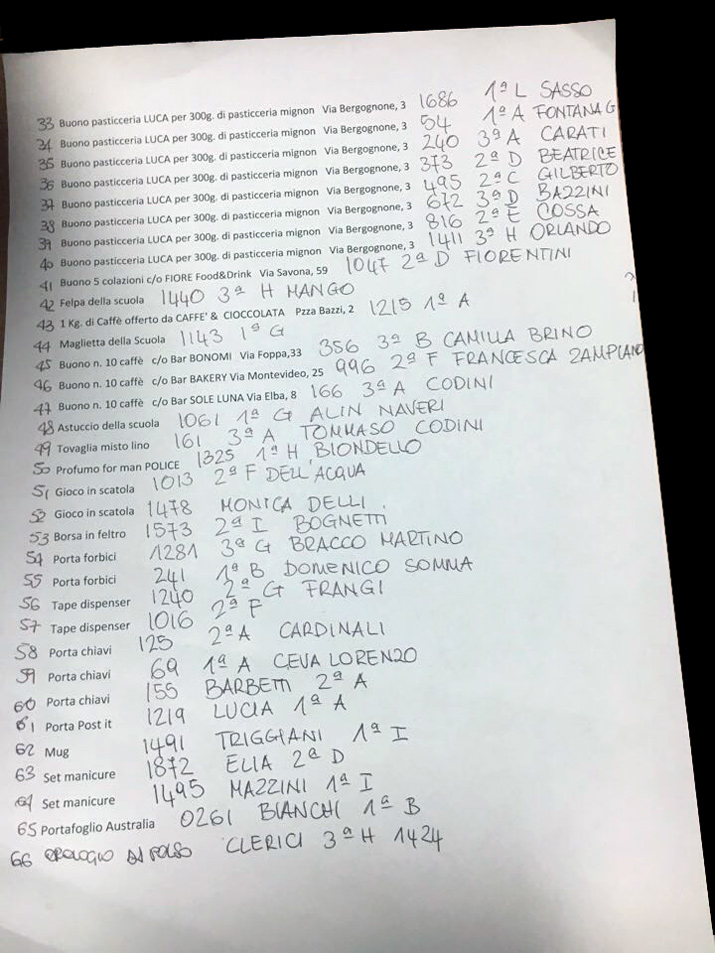 33 Buono pasticceria LUCA per 300g. di pasticceria mignon Via Bergognone, 3 1686 1ª L SASSO
34 Buono pasticceria LUCA per 300g. di pasticceria mignon Via Bergognone, 3 54 1ª A FONTANA G
35 Buono pasticceria LUCA per 300g. di pasticceria mignon Via Bergognone, 3 240 3ª A CARATI
36 Buono pasticceria LUCA per 300g. di pasticceria mignon Via Bergognone, 3 373 2ª D BEATRICE
37 Buono pasticceria LUCA per 300g. di pasticceria mignon Via Bergognone, 3 495 2ª C GILBERTO
38 Buono pasticceria LUCA per 300g. di pasticceria mignon Via Bergognone, 3 672 3ª D BAZZINI
39 Buono pasticceria LUCA per 300g. di pasticceria mignon Via Bergognone, 3 816 2ª E COSSA
40 Buono pasticceria LUCA per 300g. di pasticceria mignon Via Bergognone, 3 1411 3ª H ORLANDO
41 Buono 5 colazioni c/o FIORE Food&Drink Via Savona, 59 1047 2ª D FIORENTINI
42 Felpa della scuola 1440 3ª H MANGO
43 1 Kg. di Caffè offerto da CAFFE' & CIOCCOLATA Pzza Bazzi, 2 1215 1ª A
44 Maglietta della Scuola 1143 1ª G
45 Buono n. 10 caffè c/o Bar BONOMI Via Foppa,33 356 3ª B CAMILLA BRINO
46 Buono n. 10 caffè c/o Bar BAKERY Via Montevideo, 25 996 2ª F FRANCESCA ZAMPIANO
47 Buono n. 10 caffè c/o Bar SOLE LUNA Via Elba, 8 166 3ª A CODINI
48 Astuccio della scuola 1061 1ª G ALIN NAVERI
49 Tovaglia misto lino 161 3ª A TOMMASO CODINI
50 Profumo for man POLICE 1325 1ª H BIONDELLO
51 Gioco in scatola 1013 2ª F DELL'ACQUA
52 Gioco in scatola 1478 MONICA DELLI
53 Borsa in feltro 1573 2ª I BOGNETTI
54 Porta forbici 1281 3ª G BRACCO MARTINO
55 Porta forbici 241 1ª B DOMENICO SOMMA
56 Tape dispenser 1240 2ª G FRANGI
57 Tape dispenser 1016 2ª F
58 Porta chiavi 125 2ª A CARDINALI
59 Porta chiavi 69 1ª A CEVA LORENZO
60 Porta chiavi 155 BARBETTI 2ª A
61 Porta Post it 1219 LUCIA 1ª A
62 Mug 1491 TRIGGIANI 1ª I
63 Set manicure 1872 ELIA 2ª D
64 Set manicure 1495 MAZZINI 1ª I
65 Portafoglio Australia 0261 BIANCHI 1ª B
66 OROLOGIO DA POLSO CLERICI 3ª H 1424